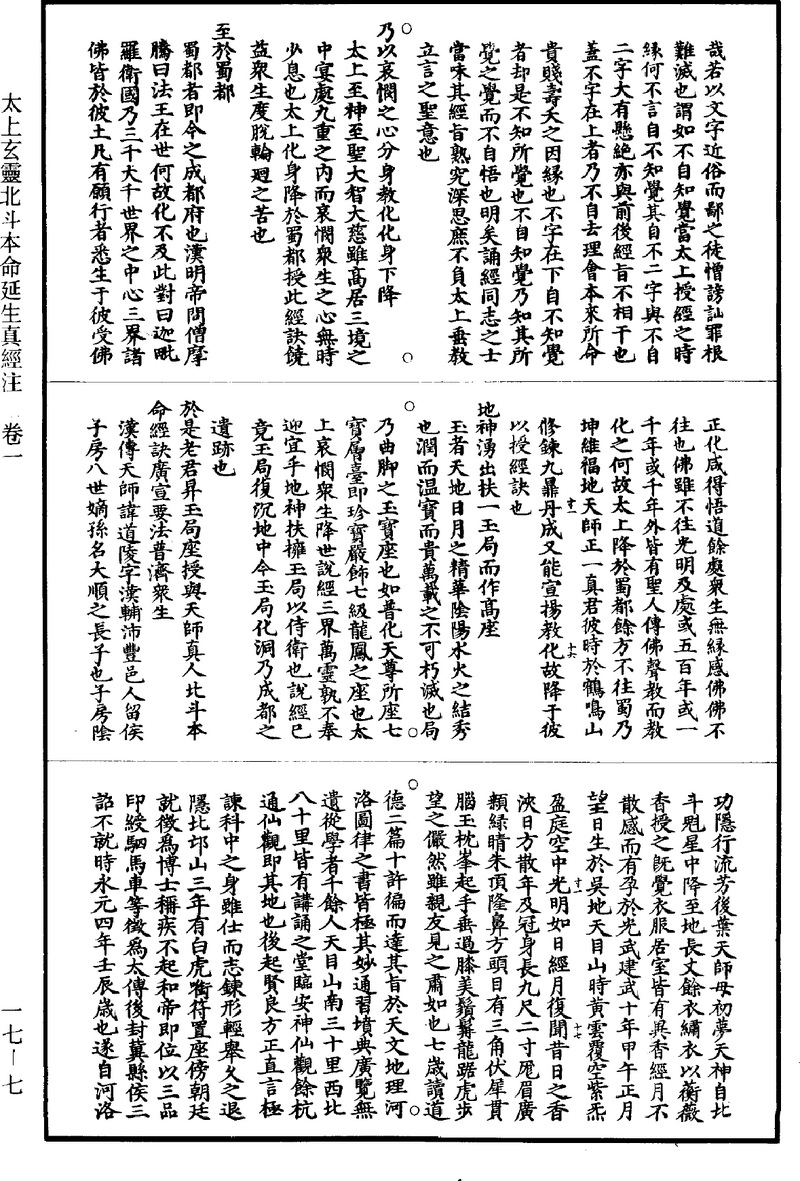 太上玄靈北斗本命延生真經注　卷一
一七—七
哉若以文字近俗而鄙之徒憎謗訕罪根
難滅也謂如不自知覺當太上授經之時
緣何不言自不知覺其自不二字與不自
二字大有懸絕亦與前後經旨不相干也
蓋不字在上者乃不自去理會本來所命
貴賤壽夭之因緣也不字在下自不知覺
者却是不知所覺也不自知覺乃知其所
覺之覺而不自悟也明矣誦經同志之士
當味其經旨熟究深思庶不負太上垂教
立言之聖意也
乃以哀憫之心分身教化化身下降
太上至神至聖大智大慈雖高居三境之
中宴處九重之內而哀憫眾生之心無時
少息也太上化身降於蜀都授此經訣饒
益眾生度脫輪迴之苦也
至於蜀都
蜀都者即今之成都府也漢明帝問僧摩
騰曰法王在世何故化不及此對曰迦毗
羅衛國乃三千大千世界之中心三界諸
佛皆於彼土凡有願行者悉生于彼受佛
正化咸得悟道餘處眾生無緣感佛佛不
往也佛雖不往光明及處或五百年或一
千年或千年外皆有聖人傳佛聲教而教
化之何故太上降於蜀都餘方不往蜀乃
坤維福地天師正一真君彼時於鶴鳴山
修鍊九鼎丹成又能宣揚教化故降于彼
以授經訣也
地神湧出扶一玉局而作高座
玉者天地日月之精華陰陽水火之結秀
也潤而温寶而貴萬載之不可朽滅也局
乃曲脚之玉寶座也如普化天尊所座七
寶層臺即珍寶嚴飾七級龍鳳之座也太
上哀憫眾生降世說經三界萬靈孰不奉
迎宜乎地神扶擁玉局以侍衛也說經已
竟玉局復沉地中今玉局化洞乃成都之
遺跡也
於是老君昇玉局座授與天師真人北斗本
命經訣廣宣要法普濟眾生
漢傳天師諱道陵字漢輔沛豐邑人留侯
子房八世嫡孫名大順之長子也子房陰
功隱行流芳後葉天師母初夢天神自北
斗魁星中降至地長丈餘衣繡衣以蘅薇
香授之既覺衣服居室皆有異香經月不
散感而有孕於光武建武十年甲午正月
望日生於吳地天目山時黃雲覆空紫炁
盈庭空中光明如日經月復聞昔日之香
浹日方散年及冠身長九尺二寸厖眉廣
顙綠睛朱頂隆鼻方頭目有三角伏犀貫
腦玉枕峯起手垂過膝美鬚髯龍踞虎步
望之儼然雖親友見之肅如也七歲讀道
德二篇十許徧而達其旨於天文地理河
洛圖律之書皆極其妙通習墳典廣覽無
遺從學者千餘人天目山南三十里西北
八十里皆有講誦之堂臨安神仙觀餘杭
通仙觀即其地也後起賢良方正直言極
諫科中之身雖仕而志鍊形輕舉久之退
隱北邙山三年有白虎啣符置座傍朝廷
就徵爲博士稱疾不起和帝即位以三品
印綬駟馬車等徵爲太傅後封冀縣侯三
詔不就時永元四年壬辰歲也遂自河洛